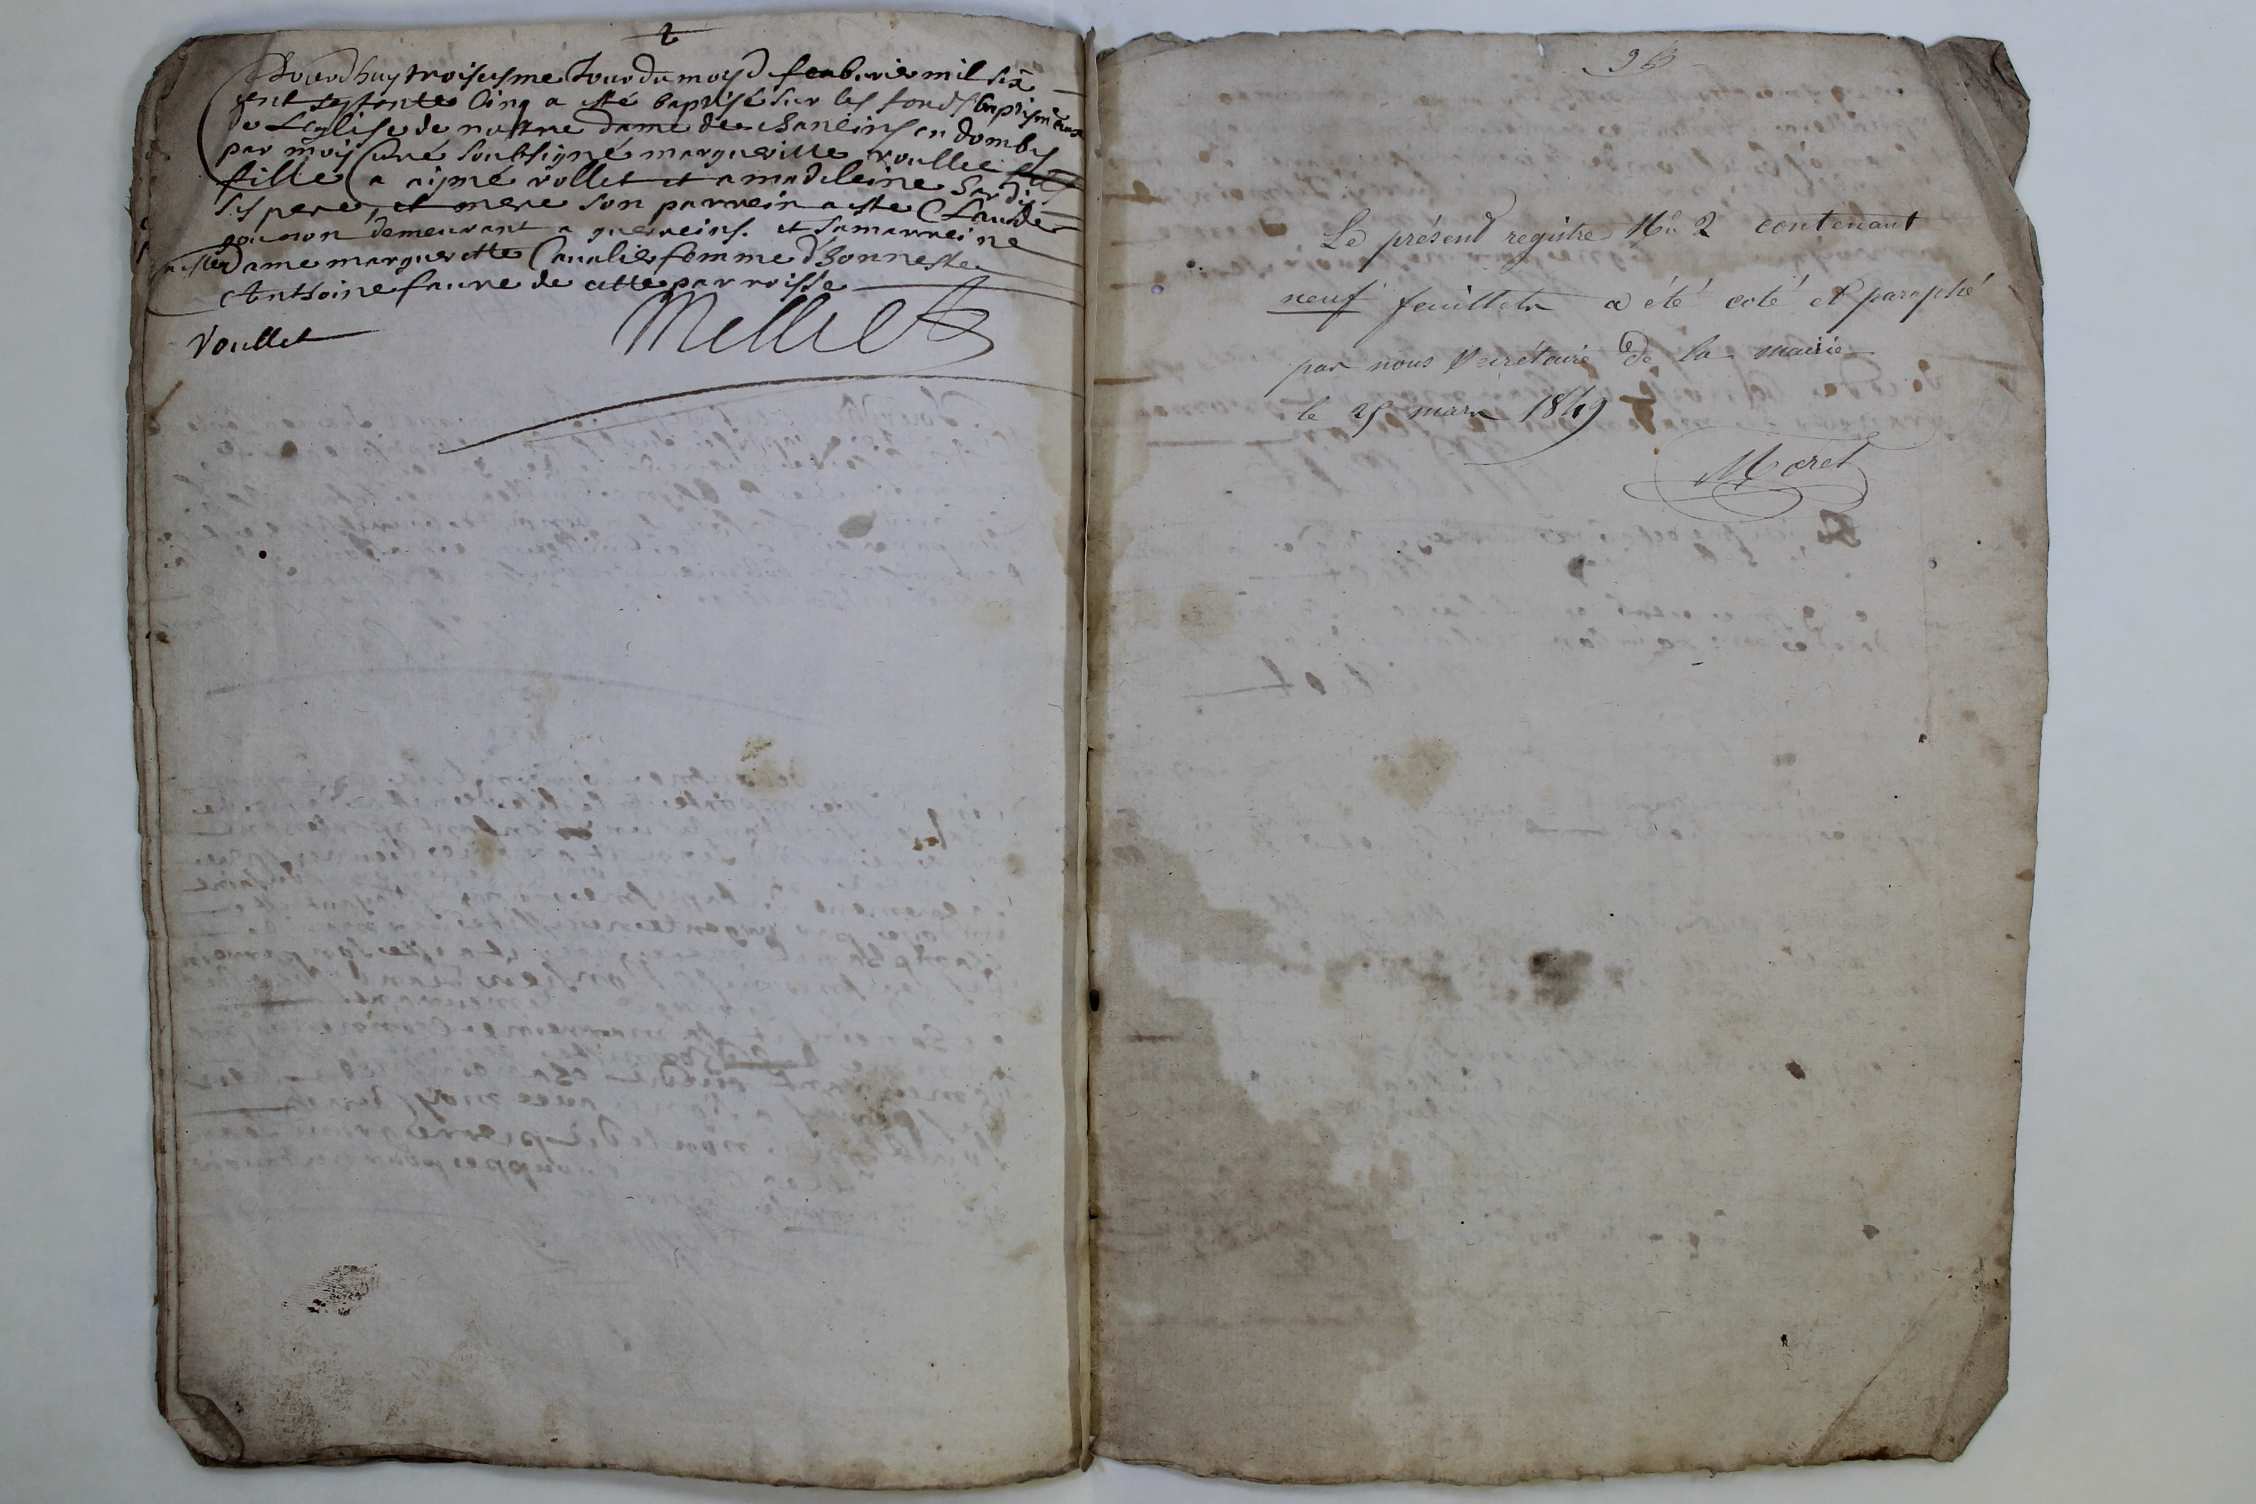 Jourdhuy troisiesme Jour du moys d feubvrier mil six
cent septante Cinq a esté baptisé sur les fonds baptismeaux
de Leglise de nostre dame de chaneins en dombes
par moy Curé soubsigné margueritte voullet
fille a aymé vollet et a madeleine Sardi
ses pere, et mere son parrein a esté Claude
goumon demeurant a guerreins. et sa marreine
a esté Dame marguerette Cavalie femme d'honneste
Anthoine faure de cette parroisse
Voullet
Melliet
Le présent registre No 2 contenant
neuf feuillets a été coté et paraphé
par nous Secrétaire de la mairie
le 25 mars 1849
Moret